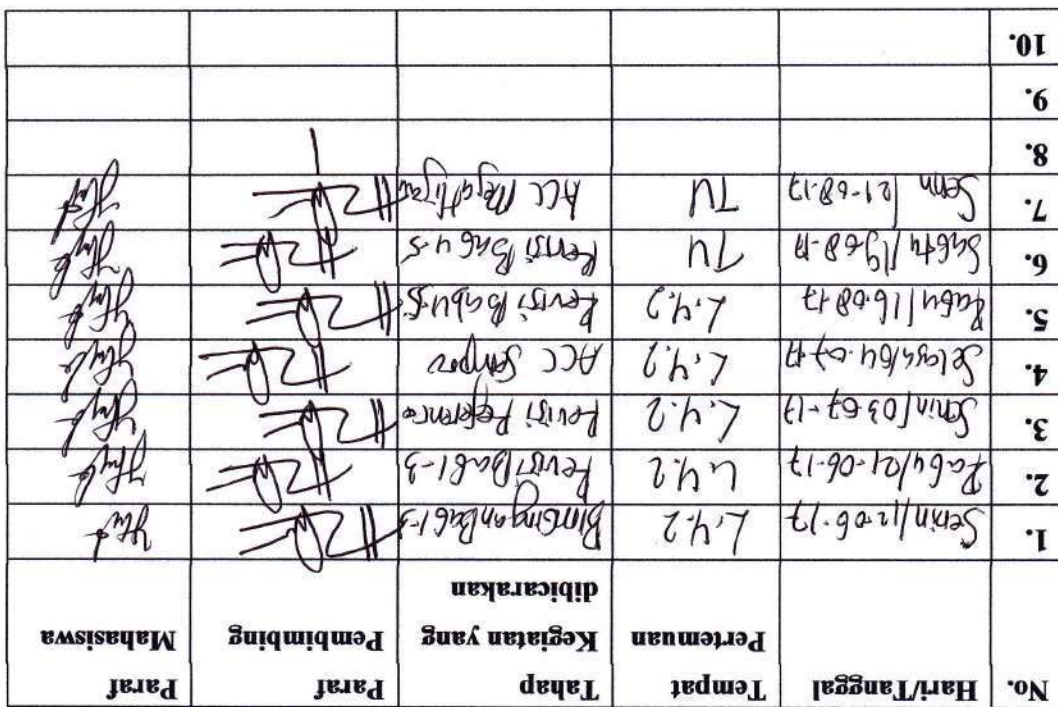 No. Hari/Tanggal Tempat Pertemuan Tahap Kegiatan yang dibicarakan Paraf Pembimbing Paraf Mahasiswa
1. Senin/12-06-17 L.4.2 Bimbingan Bab 1-3
2. Rabu/21-06-17 L.4.2 Revisi Bab 1-3
3. Senin/03-07-17 L.4.2 Revisi Referensi
4. Selasa/04-07-17 L.4.2 ACC Sempro
5. Rabu/16-08-17 L.4.2 Revisi Bab 4-5
6. Sabtu/19-08-17 TU Revisi Bab 4-5
7. Senin/21-08-17 TU ACC
8.
9.
10.